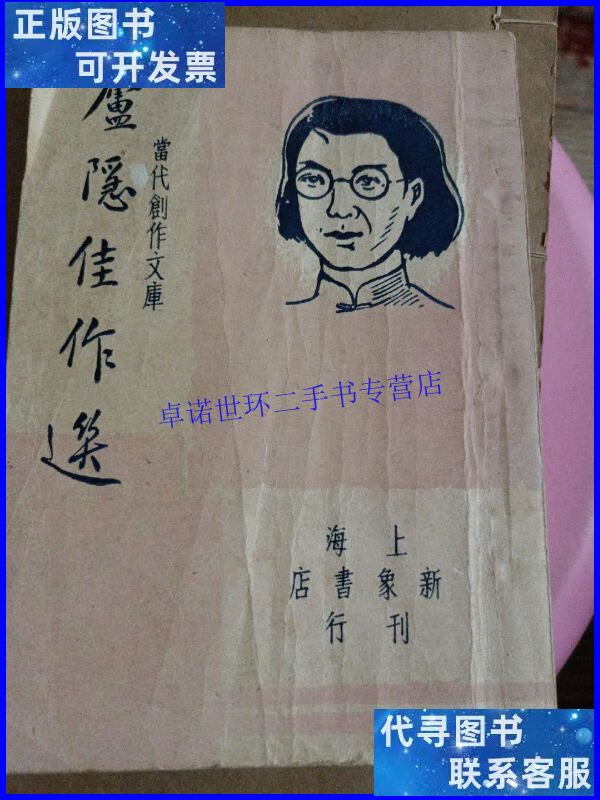 正版图书
可开发票
廬隱佳作選
當代創作文庫
卓诺世环二手书专营店
上海
新象書店
刊行
代寻图书
联系客服